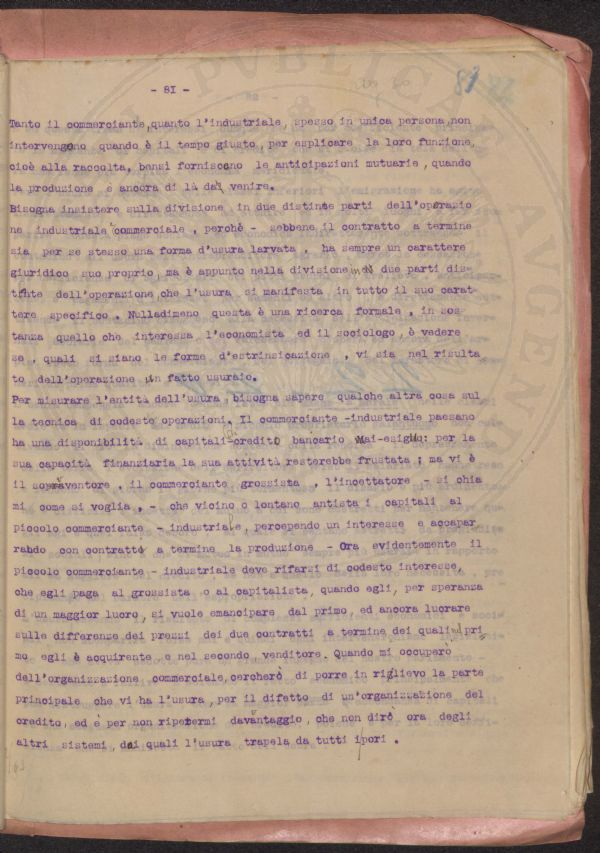 - 81 -
Tanto il commerciante,quanto l'industriale, spesso in unica persona,non
intervengono quando è il tempo giusto, per esplicare la loro funzione,
cioè alla raccolta, bensì forniscono le anticipazioni mutuarie, quando
la produzione è ancora di là dal venire.
Bisogna insistere sulla divisione in due distinte parti dell'operazio
ne industriale commerciale, perchè - sebbene il contratto a termine
sia per se stesso una forma d'usura larvata, ha sempre un carattere
giuridico suo proprio, ma è appunto nella divisione in due parti dis-
tinte dell'operazione,che l'usura si manifesta in tutto il suo carat-
tere specifico. Nulladimeno questa è una ricerca formale, in sos-
tanza quello che interessa l'economista ed il sociologo, è vedere
se, quali si siano le forme d'estrinsicazione, vi sia nel risulta
to dell'operazione un fatto usuraio.
Per misurare l'antità dell'usura, bisogna sapere qualche altra cosa sul
la tecnica di codeste operazioni. Il commerciante -industriale paesano
ha una disponibilità di capitali credito bancario esiguo: per la
sua capacità finanziaria la sua attività resterebbe frustata; ma vi è
il sopraventore, il commerciante grossista, l'incettatore - si chia
mi come si voglia, - che vicino o lontano antista i capitali al
piccolo commerciante - industriale, percependo un interesse e accapar
rando con contratto a termine la produzione - Ora evidentemente il
piccolo commerciante - industriale deve rifarsi di codesto interesse,
che egli paga al grossista o al capitalista, quando egli, per speranza
di un maggior lucro, si vuole emancipare dal primo, ed ancora lucrare
sulle differenze dei prezzi dei due contratti a termine dei quali nel pri
mo egli è acquirente, e nel secondo, venditore. Quando mi occuperò
dell'organizzazione commerciale,cercherò di porre in riglievo la parte
principale che vi ha l'usura, per il difetto di un'organizzazione del
credito, ed è per non ripetermi davantaggio, che non dirò ora degli
altri sistemi, dai quali l'usura trapela da tutti i pori.